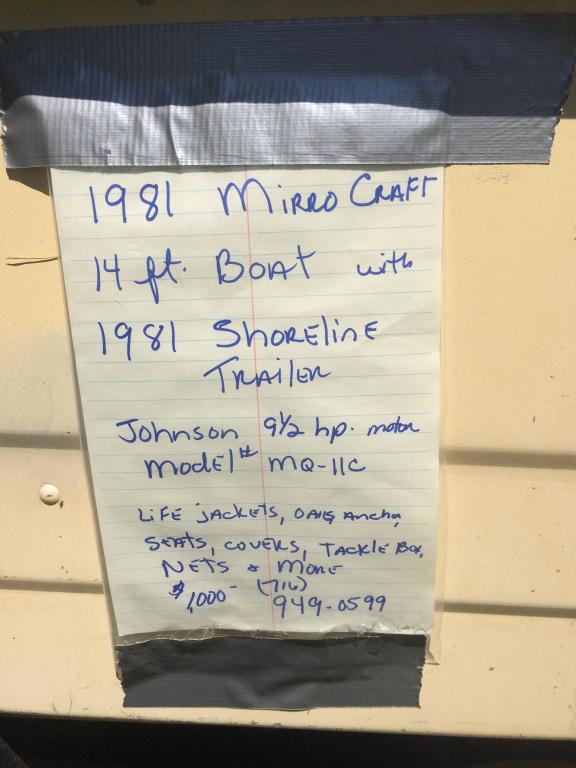 1981 Mirro Craft
14 ft. Boat with
1981 Shoreline
Trailer
Johnson 9½ hp. motor
model # MQ-11C
Life Jackets, oars, Anchor,
Seats, covers, Tackle Box,
Nets & More
$1,000- (716)
949-0599